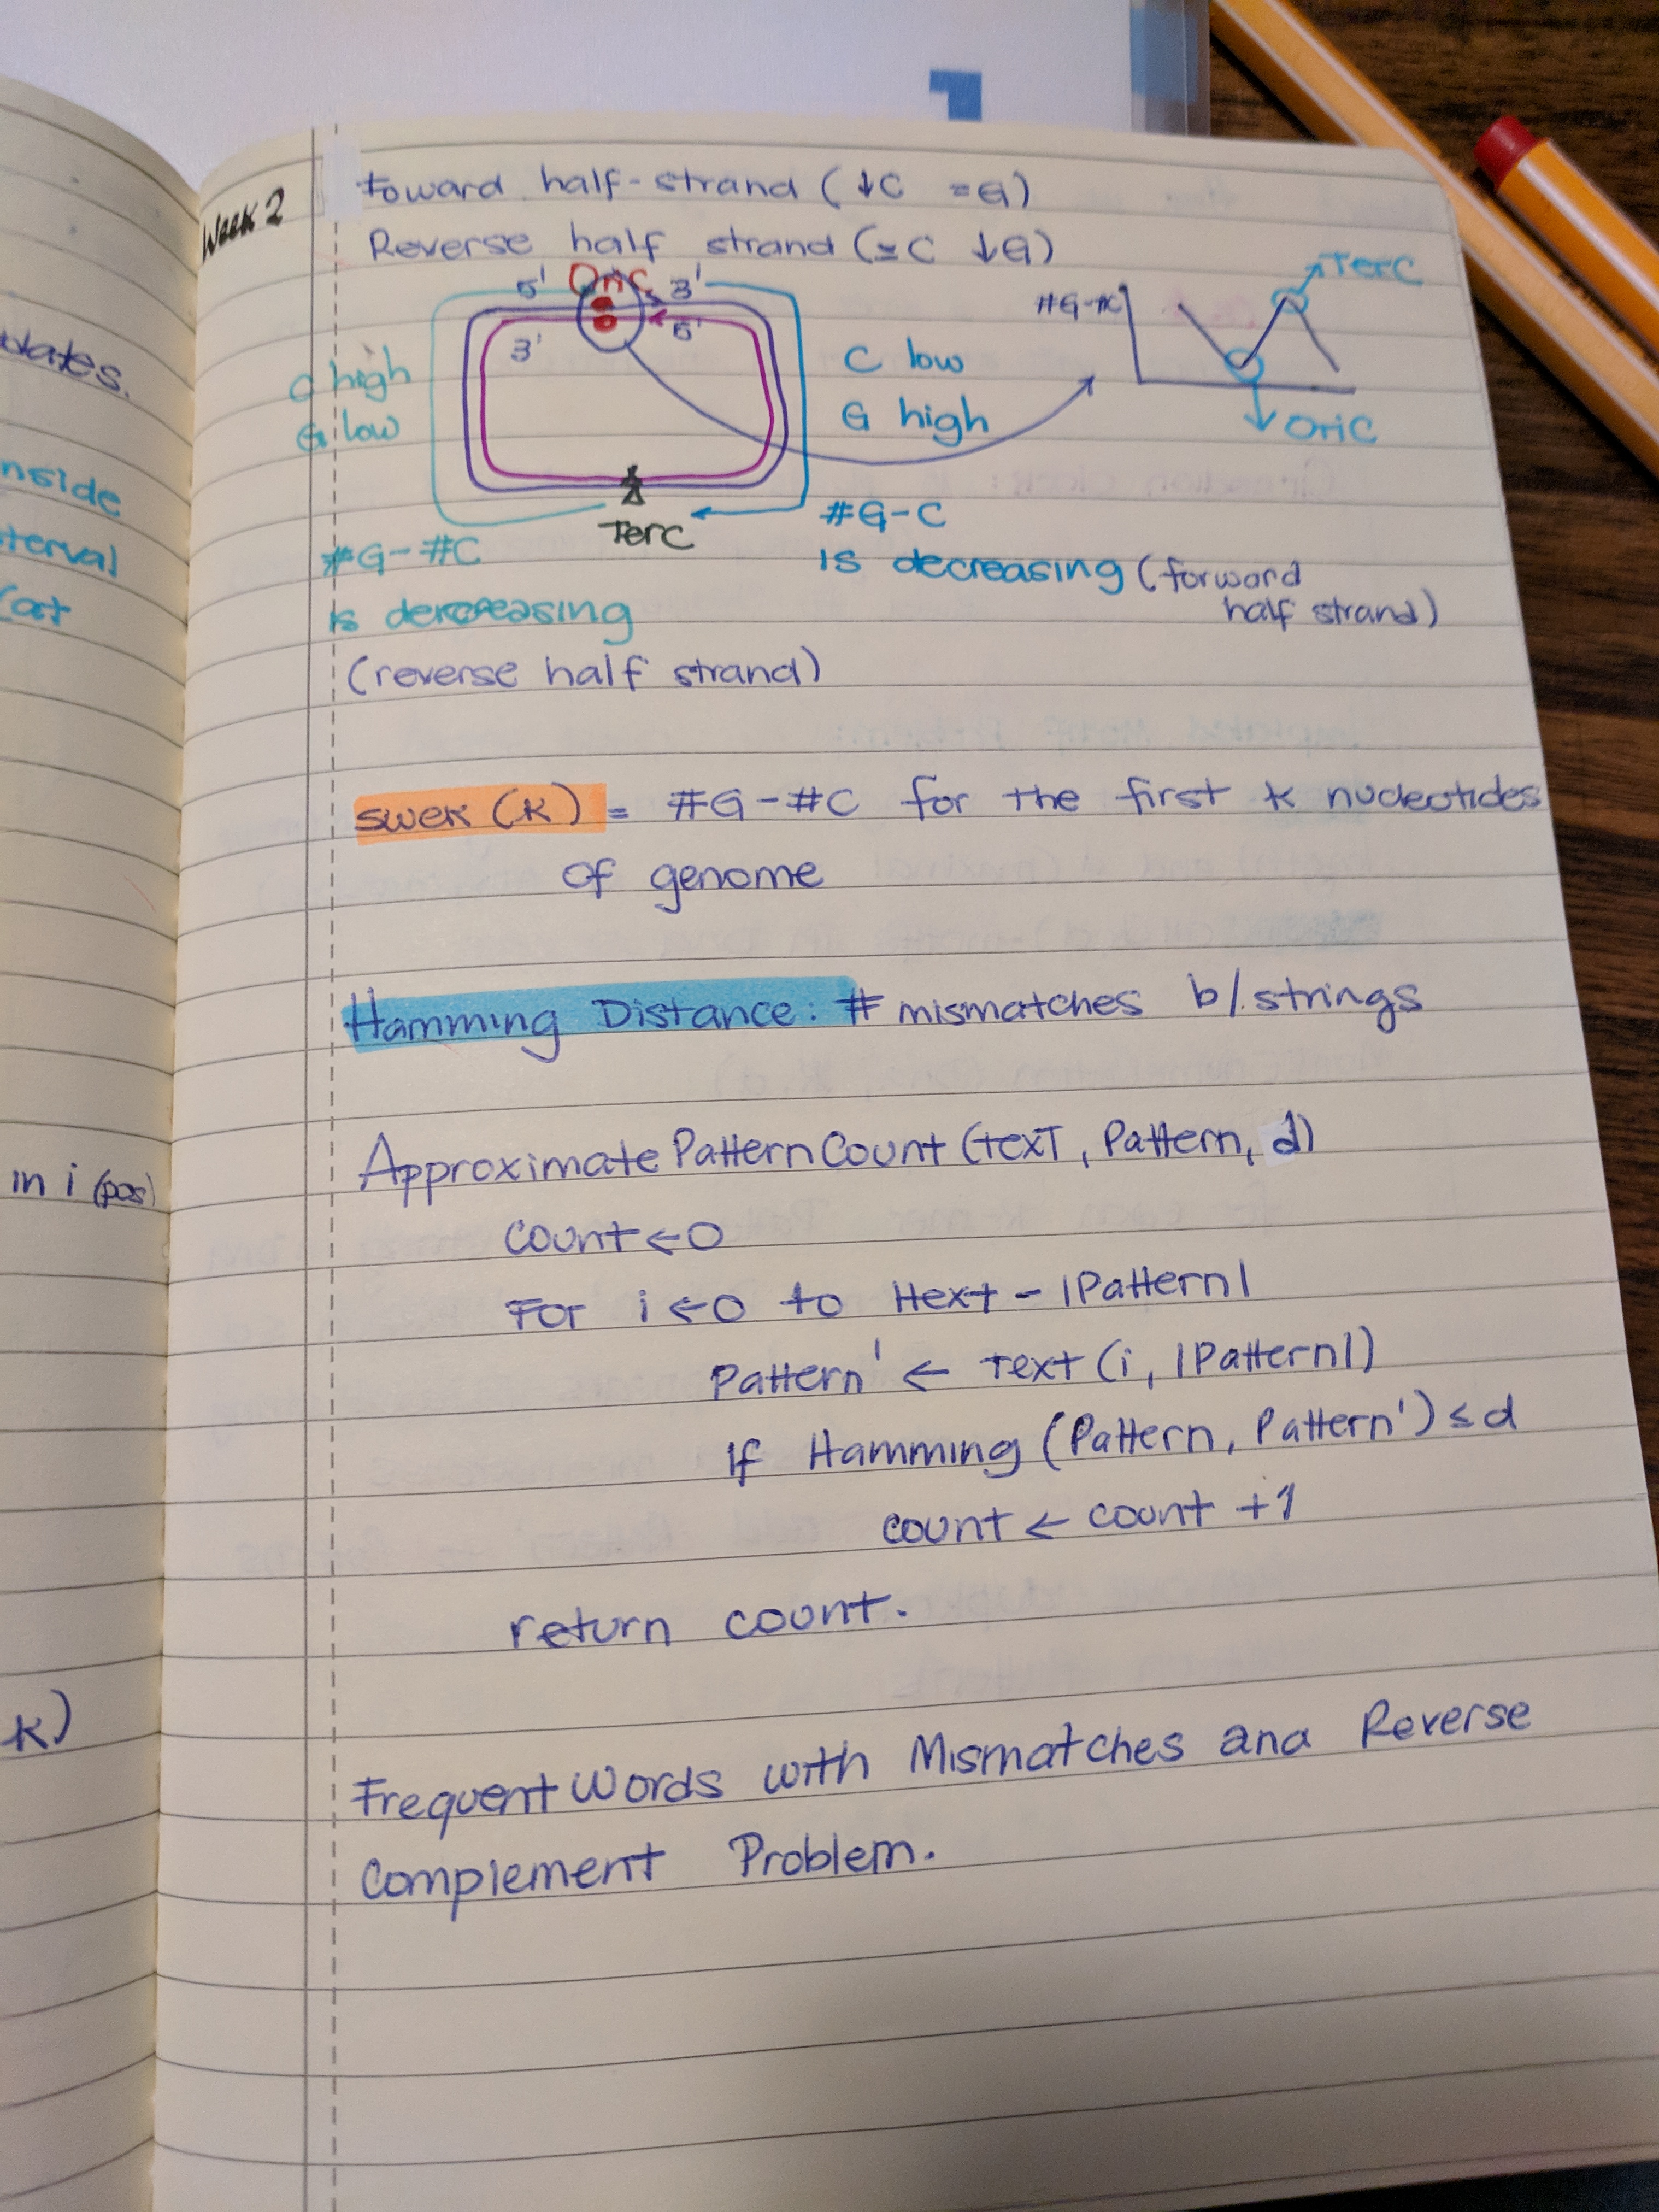 Week 2
Foward half-strand (↓C =G)
Reverse half strand (=C ↓G)
5' OriC 3'
3' 5'
C high
G low
C low
G high
#G-#C
TerC
OriC
TerC
#G-C
is decreasing (forward
half strand)
#G-#C
is dercreasing
(reverse half strand)
swek (k) = #G-#C for the first k nucleotides
of genome
Hamming Distance: # mismatches b/. strings
Approximate Pattern Count (text, Pattern, d)
count ← 0
For i ← 0 to |text - |Pattern|
Pattern' ← Text (i, |Pattern|)
If Hamming (Pattern, Pattern') ≤ d
count ← count +1
return count.
Frequent Words with Mismatches and Reverse
Complement Problem.
plates.
nside
terval
(at
in i (pos)
k)